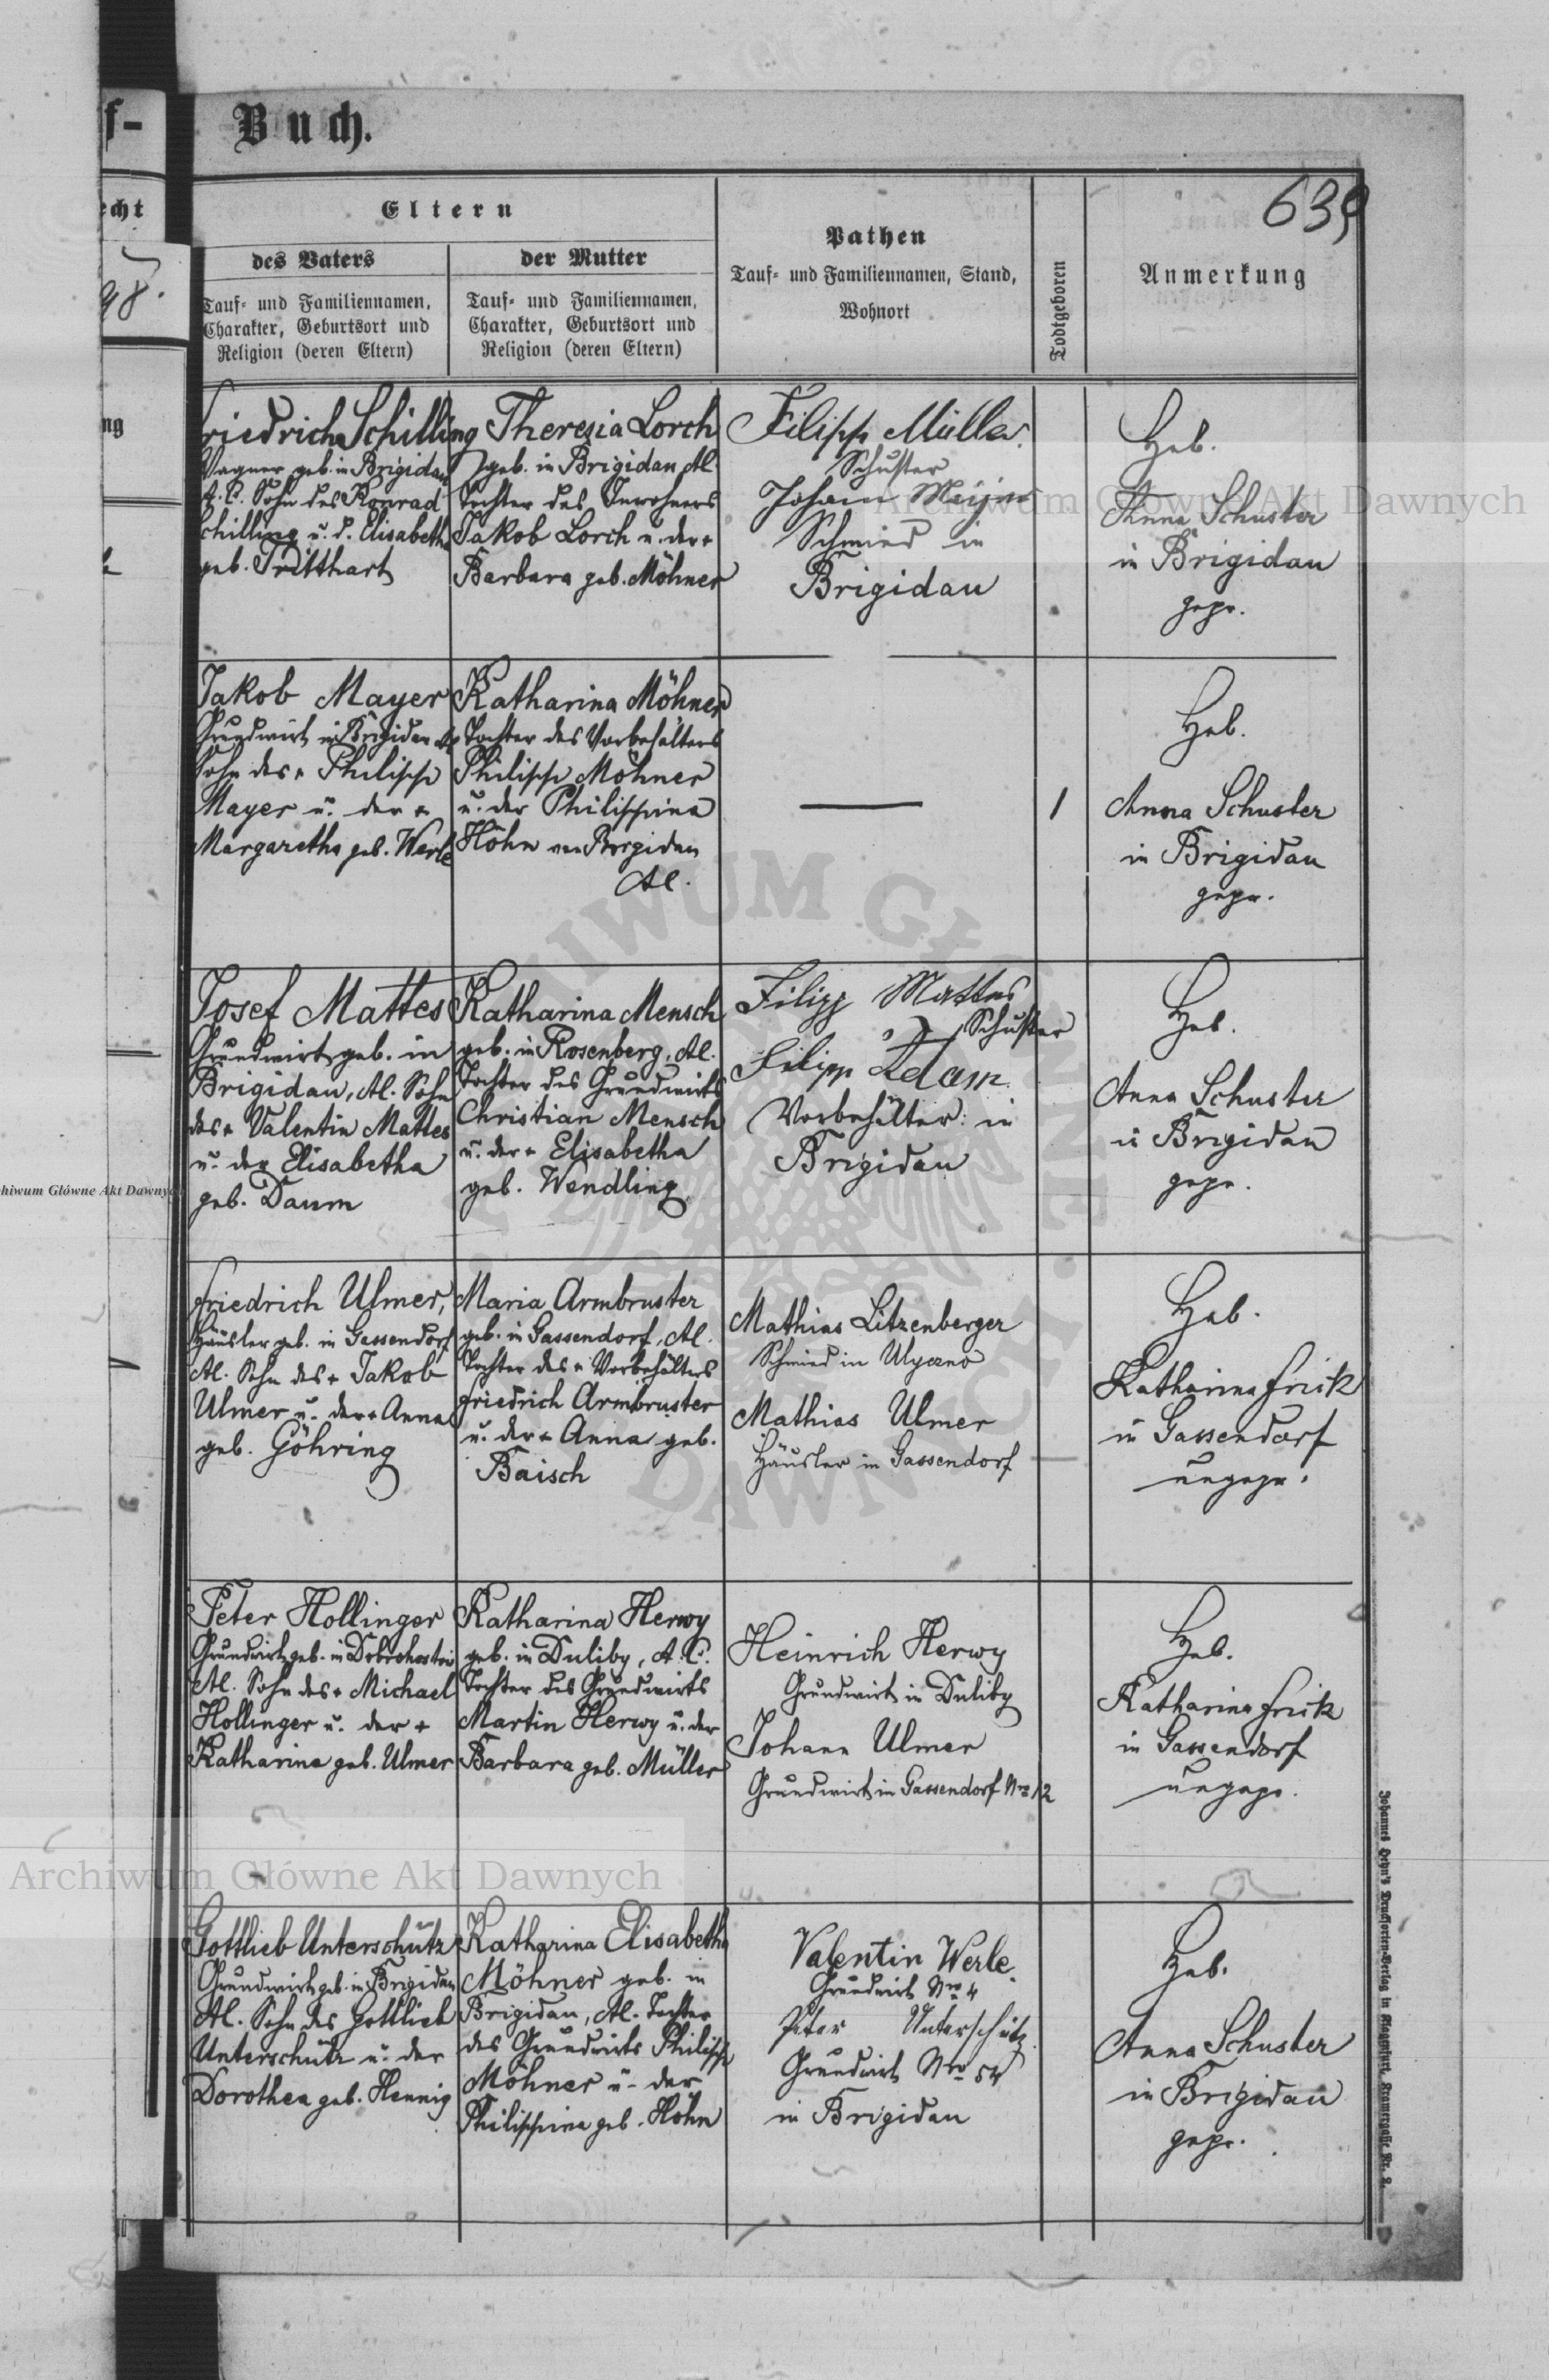 Buch.
639
Eltern
des Vaters
Tauf- und Familiennamen,
Charakter, Geburtsort und
Religion (deren Eltern)
der Mutter
Tauf- und Familiennamen,
Charakter, Geburtsort und
Religion (deren Eltern)
Pathen
Tauf- und Familiennamen, Stand,
Wohnort
Todtgeboren
Anmerkung
Friedrich Schilling
Wagner geb. in Brigidau
A. C. Sohn des Konrad
Schilling u. d. Elisabetha
geb. Tritthart
Theresia Lorch
geb. in Brigidau, AC.
Tochter des Inwohners
Jakob Lorch u. der +
Barbara geb. Möhner
Filipp Müller
Schuster
Johann
Schmied in
Brigidau
Heb.
Anna Schuster
in Brigidau
gepr.
Jakob Mayer
Grundwirt in Brigidau AC
Sohn des + Philipp
Mayer u. der +
Margaretha geb. Werle
Katharina Möhner
Tochter des Vorbehälters
Philipp Möhner
u. der Philippina
Höhn von Brigidau
AC.
1
Heb.
Anna Schuster
in Brigidau
gepr.
Josef Mattes
Grundwirt geb. in
Brigidau, AC. Sohn
des + Valentin Mattes
u. der Elisabetha
geb. Daum
Katharina Mensch
geb. in Rosenberg, AC.
Tochter des Grundwirts
Christian Mensch
u. der + Elisabetha
geb. Wendling
Filipp Mattes
Schuster
Filipp Adam
Vorbehälter in
Brigidau
Heb.
Anna Schuster
in Brigidau
gepr.
Friedrich Ulmer,
Häusler geb. in Gassendorf
AC. Sohn des + Jakob
Ulmer u. der + Anna
geb. Göhring
Maria Armbruster
geb. in Gassendorf, AC.
Tochter des + Vorbehälters
Friedrich Armbruster
u. der + Anna geb.
Baisch
Mathias Litzenberger
Schmied in Ulyczno
Mathias Ulmer
Häusler in Gassendorf
Heb.
Katharina Frick
in Gassendorf
ungepr.
Peter Hollinger
Grundwirt geb. in
AC. Sohn des + Michael
Hollinger u. der +
Katharina geb. Ulmer
Katharina Herwy
geb. in Duliby, A. C.
Tochter des Grundwirts
Martin Herwy u. der
Barbara geb. Müller
Heinrich Herwy
Grundwirt in Duliby
Johann Ulmer
Grundwirt in Gassendorf Nro 12
Heb.
Katharina Frick
in Gassendorf
ungepr.
Gottlieb Unterschütz
Grundwirt geb. in Brigidau
AC. Sohn des Gottlieb
Unterschütz u. der
Dorothea geb. Hennig
Katharina Elisabetha
Möhner geb. in
Brigidau, AC. Tochter
des Grundwirts Philipp
Möhner u. der
Philippina geb. Höhn
Valentin Werle
Grundwirt Nro 4
Peter Unterschütz
Grundwirt Nro 54
in Brigidau
Heb.
Anna Schuster
in Brigidau
gepr.
Johannes Heyn's Drucksorten-Verlag in Klagenfurt, Kramergasse Nr. 2.
Archiwum Główne Akt Dawnych
Archiwum Główne Akt Dawnych